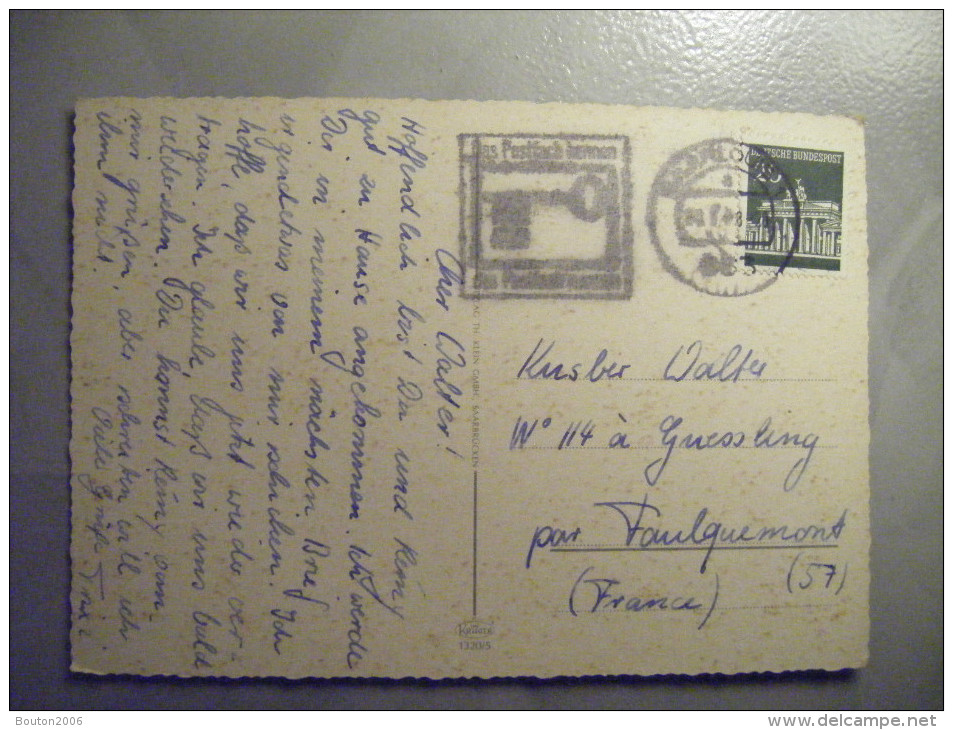 Cher Walter!
Hoffendlich bist Du und Remy
gut zu Hause angekommen. Ich werde
Dir in meinem nächsten Brief
irgendetwas von mir schicken. Ich
hoffe, daß wir uns jetzt wieder ver-
tragen. Ich glaube daß wir uns bald
wiedersehen. Du kannst Remy von
mir grüßen, aber schreiben will ich
ihm nicht.
Viele Grüße
Das Postfach kennen
DEUTSCHE BUNDESPOST
Kusber Walter
N° 114 à Guessling
par Faulquemont
(57)
(France)
TH. KLEIN GMBH, SAARBRÜCKEN
Krüger
1320/5
Bouton2006
www.delcampe.net